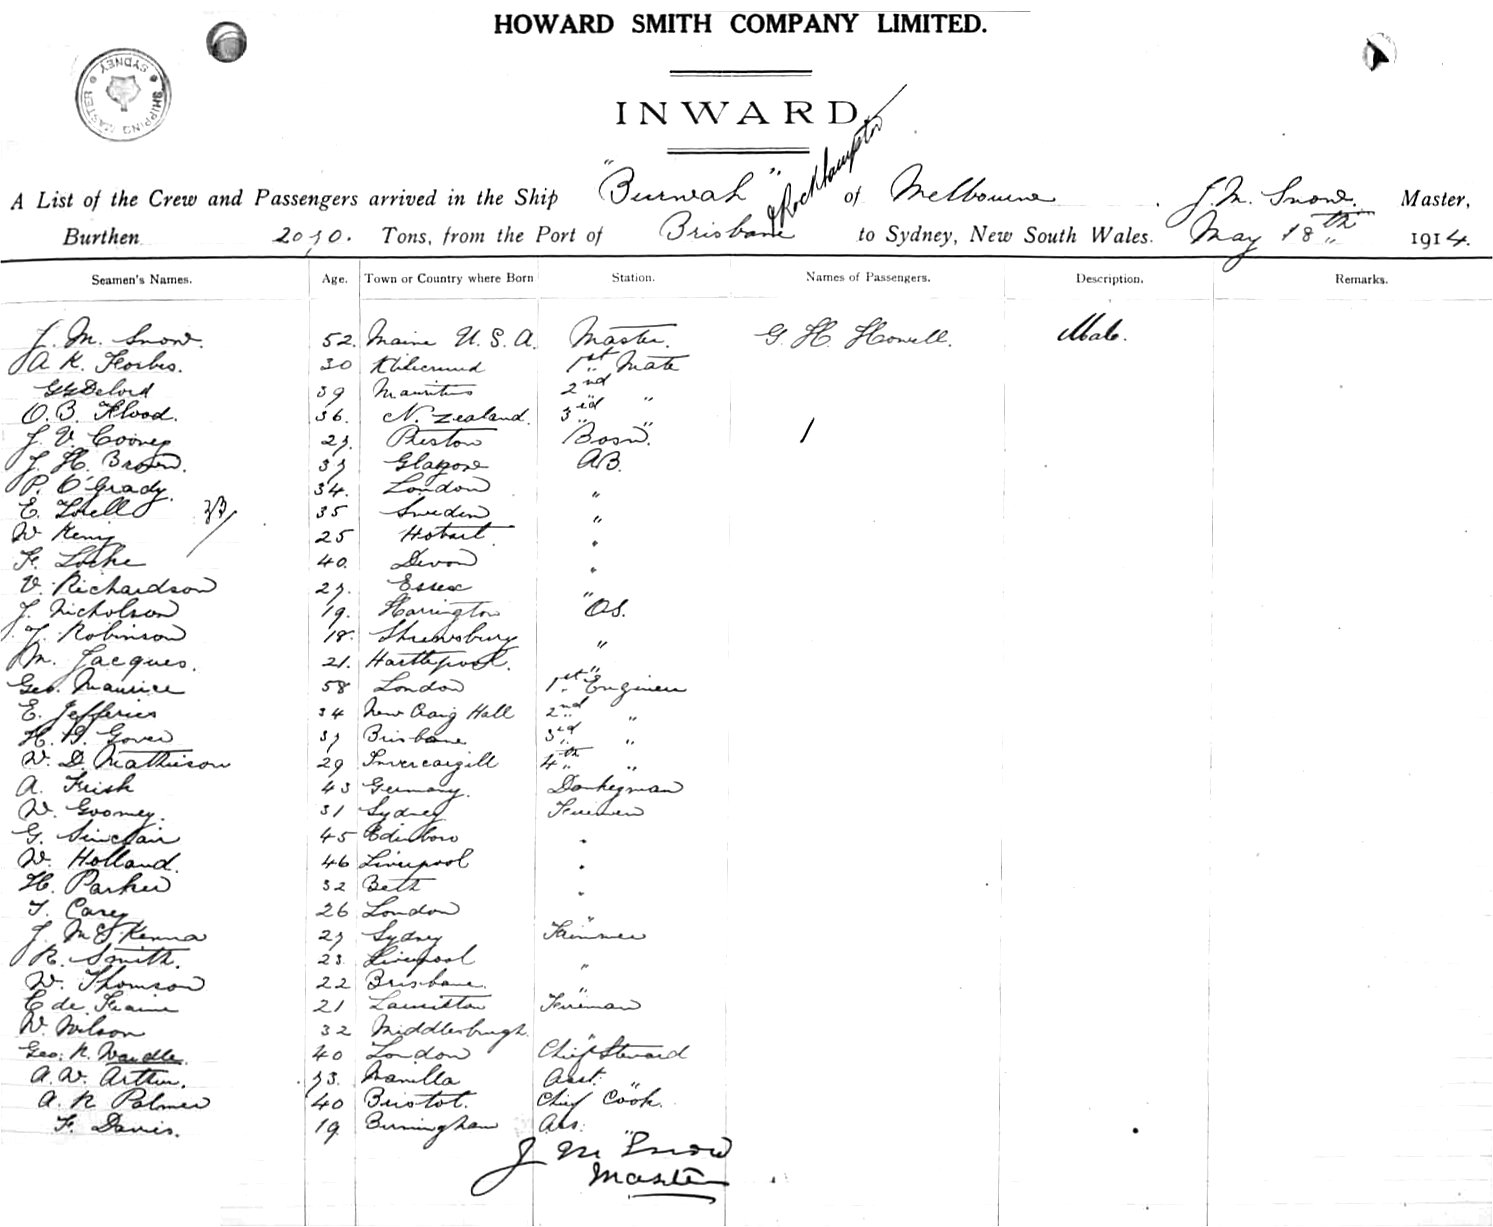 HOWARD SMITH COMPANY LIMITED.
SHIPPING MASTER SYDNEY
INWARD
A List of the Crew and Passengers arrived in the Ship "Burwah" of Melbourne J. M. Snow. Master,
& Rockhampton
Burthen 2070. Tons, from the Port of Brisbane to Sydney, New South Wales. May 18th 1914.
Seamen's Names. Age. Town or Country where Born Station. Names of Passengers. Description. Remarks.
J. M. Snow. 52. Maine U. S. A. Master. G. H. Howell. Male.
A K. Forbes. 30 1st Mate
39 Mauritius 2nd "
O. B. Flood. 36. N. Zealand. 3rd "
J. V. Cooney 27. Preston Bosn. 1
J. H. Brown. 37 Glasgow AB.
P. O'Grady. 34. London "
E. 33/ 35 Sweden "
W 25 Hobart. "
F. Locke 40. Devon "
V. Richardson 27. Essex "
J. Nicholson 19. Harrington OS.
J. Robinson 18. Shrewsbury "
M. Jacques. 21. Hartlepool. "
Geo. Maurice 58 London 1st Engineer
E. Jefferies 34 New Craig Hall 2nd "
H. G. Gover 37 Brisbane 3rd "
W. D. Mathieson 29 Invercargill 4th "
A. Frisk 43 Germany. Donkeyman
W. 31 Sydney Firemen
G. Sinclair 45 Edinboro "
W. Holland. 46 Liverpool "
H. Parker 32 "
T. Carey 26 London "
J. McKenna 27 Sydney Trimmer
R. Smith. 23 Liverpool "
W. Thomson 22 Brisbane. "
C de 21 Fireman
W. Wilson 32 Middlesburgh. "
Geo. R. Wardle. 40 London Chief Steward
A. W. Arthur. 73. Manilla Asst. "
A. R Palmer 40 Bristol. Chief Cook.
F. Davis. 19 Birmingham Ass. "
J M Snow
Master